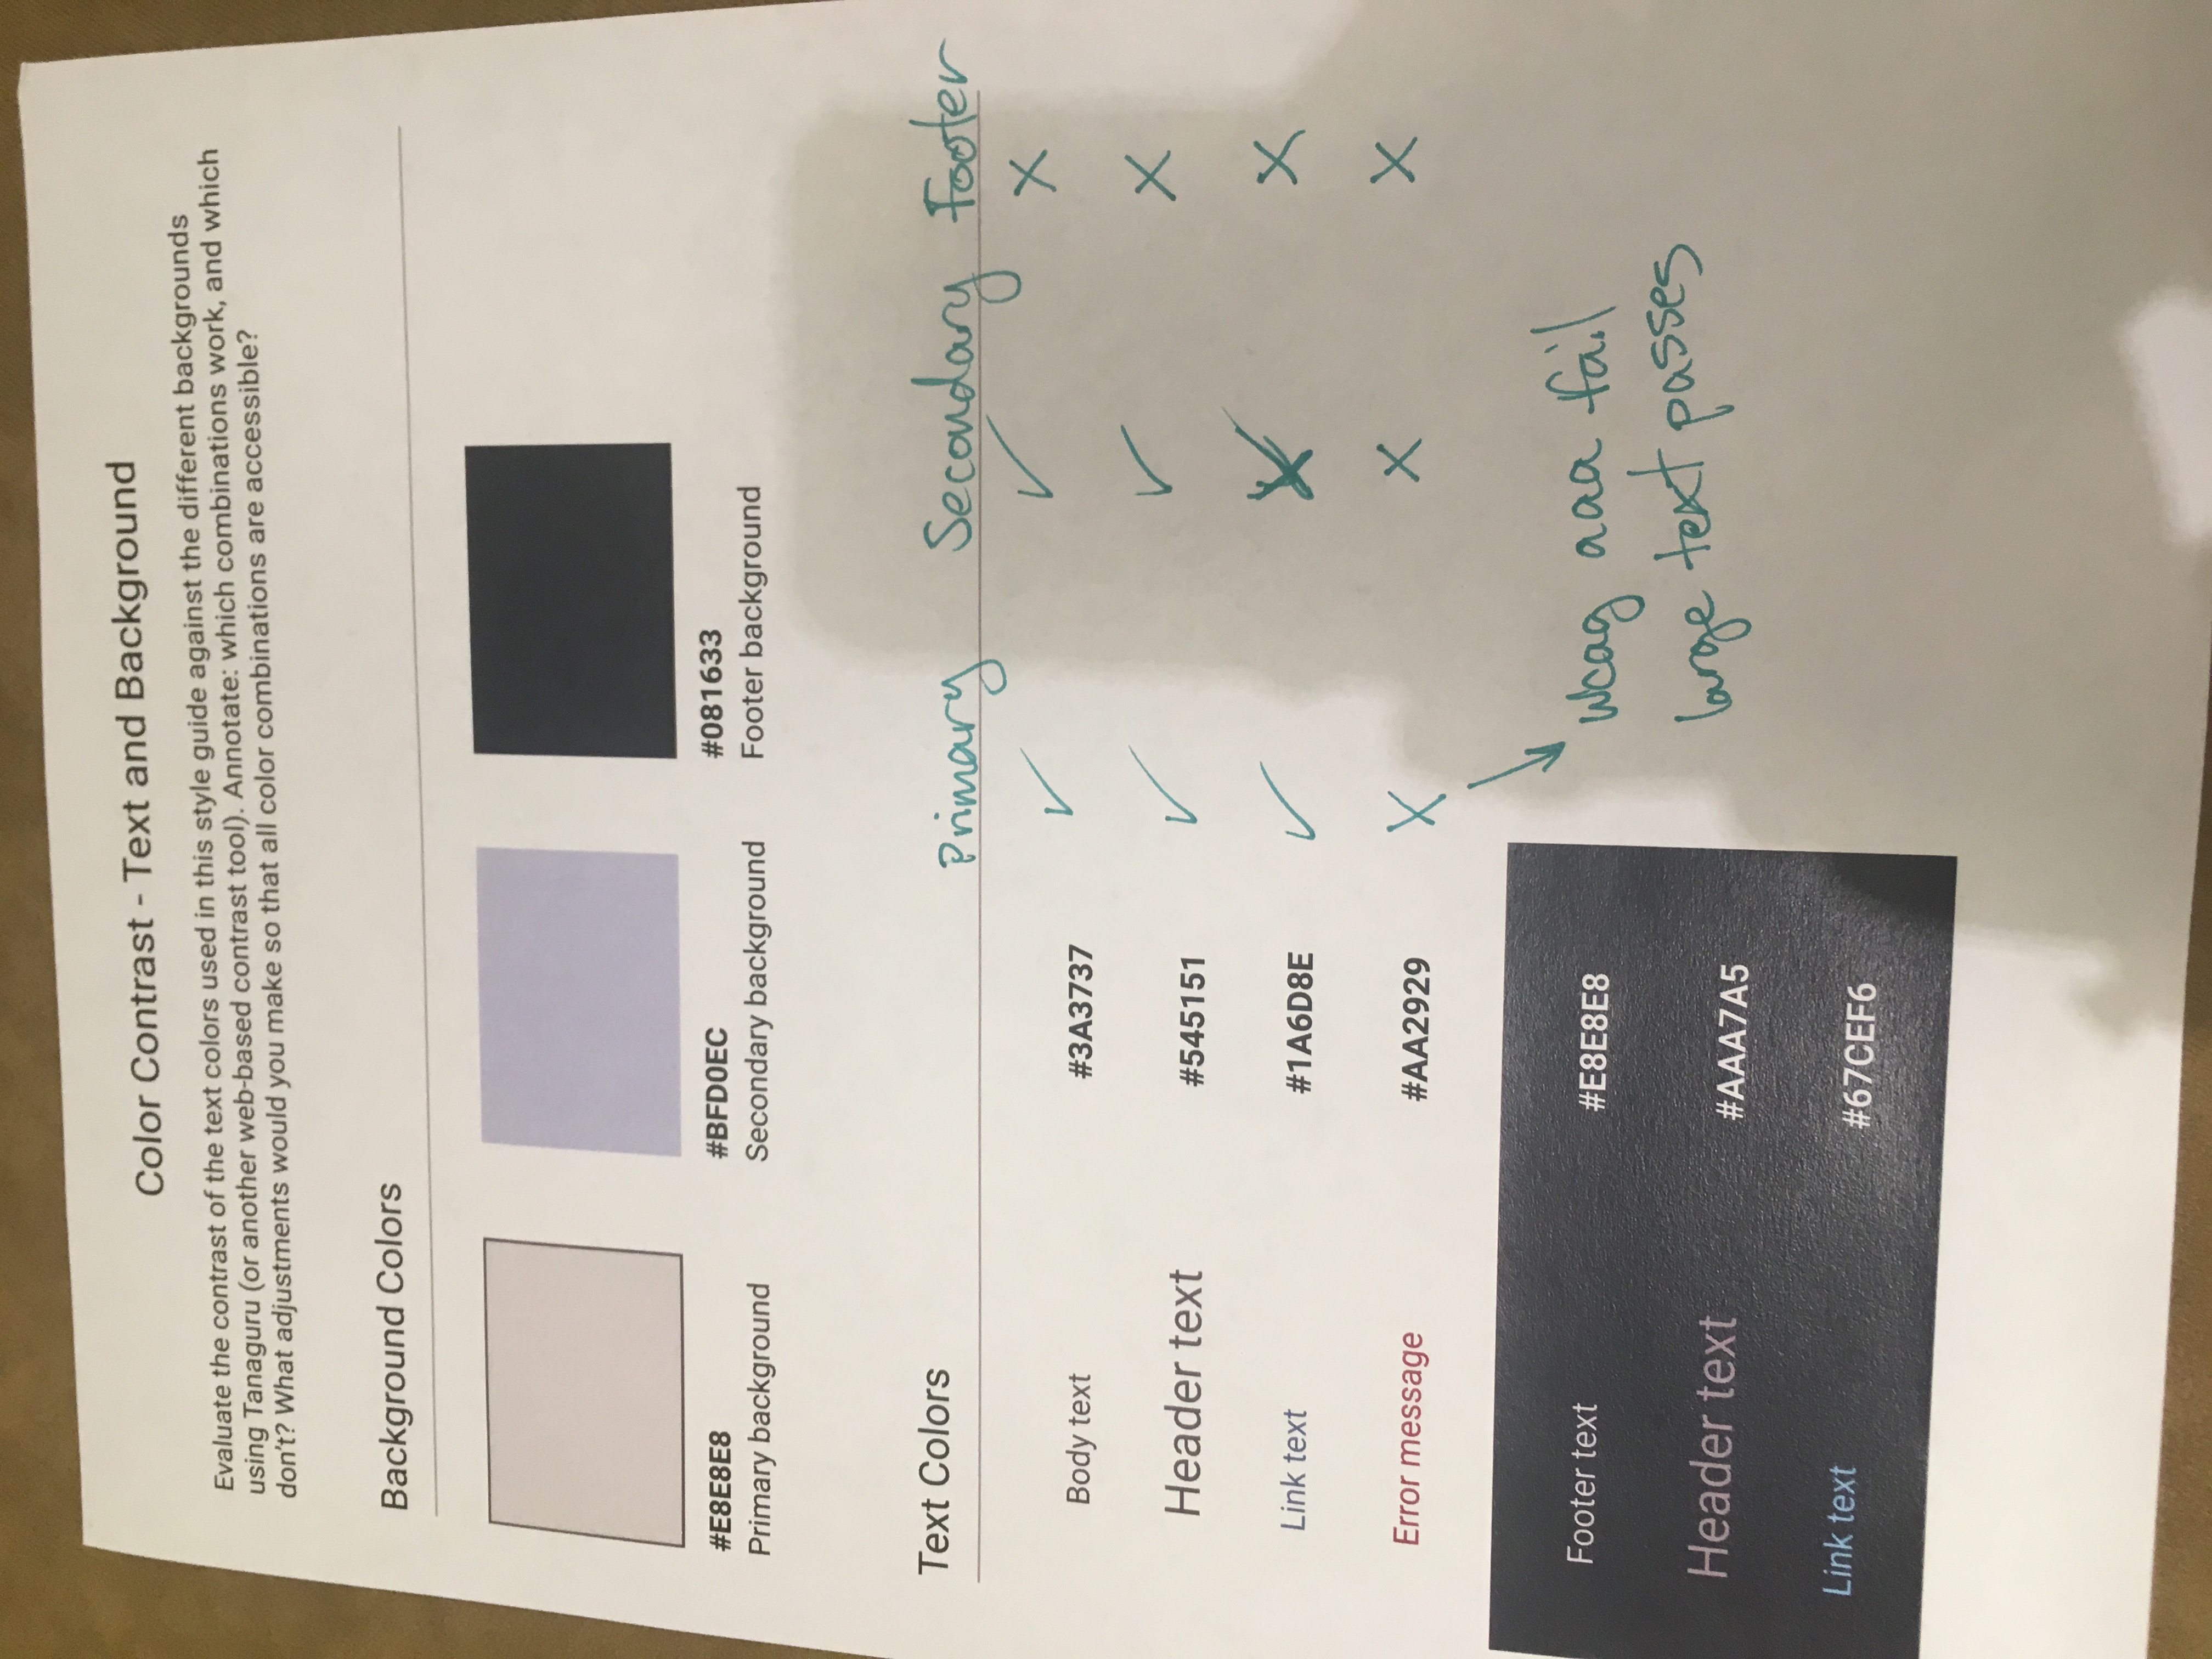 Color Contrast - Text and Background
Evaluate the contrast of the text colors used in this style guide against the different backgrounds
using Tanaguru (or another web-based contrast tool). Annotate: which combinations work, and which
don't? What adjustments would you make so that all color combinations are accessible?
Background Colors
#E8E8E8 #BFD0EC #081633
Primary background Secondary background Footer background
Text Colors Primary Secondary Footer
Body text #3A3737 ✓ ✓ X
Header text #545151 ✓ ✓ X
Link text #1A6D8E ✓ X X
Error message #AA2929 X X X
Footer text #E8E8E8
wcag aaa fail
large text passes
Header text #AAA7A5
Link text #67CEF6